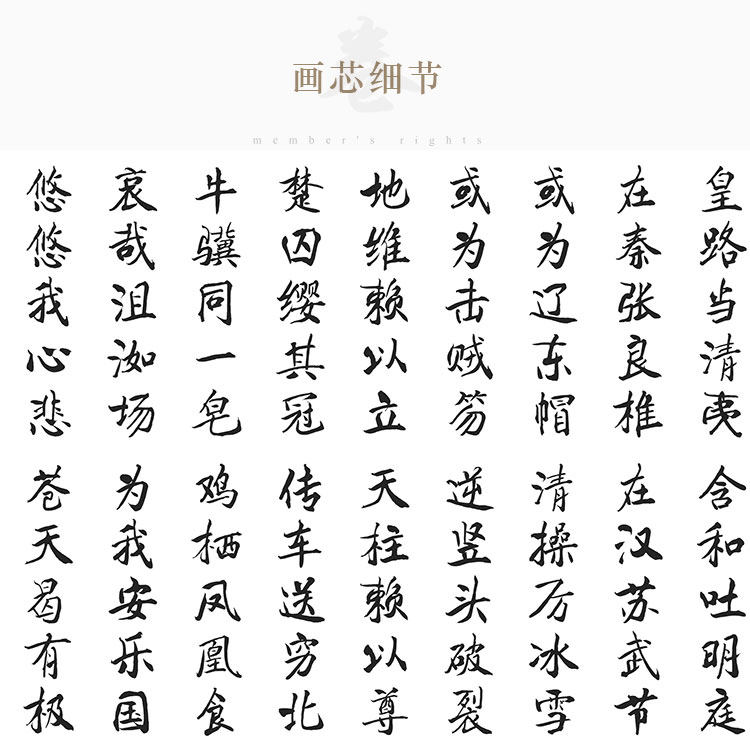 画芯细节
member's rights
皇路当清夷 含和吐明庭
在秦张良椎 在汉苏武节
或为辽东帽 清操厉冰雪
或为击贼笏 逆竖头破裂
地维赖以立 天柱赖以尊
楚囚缨其冠 传车送穷北
牛骥同一皂 鸡栖凤凰食
哀哉沮洳场 为我安乐国
悠悠我心悲 苍天曷有极